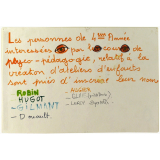 Les personnes de 4ème Année
intéressées par le cours de
psyco-pédagogie, relatif à la
création d'ateliers d'enfants
sont priés d'inscrire leur nom
ROBIN
HUGOT
- GILMANT
- D
- AUGIER